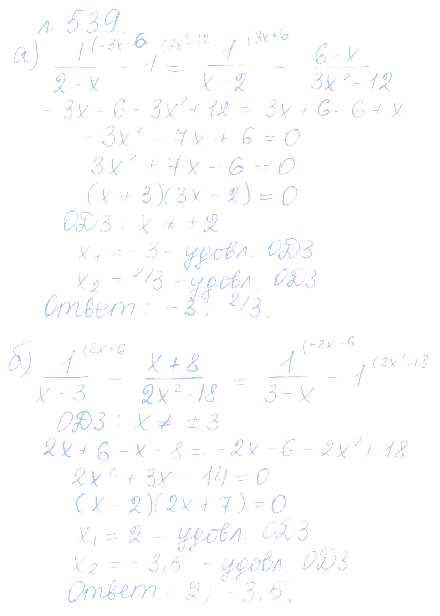 № 539.
а) 1^(-3x-6 / 2-x - 1^(3x²-12 = 1^(3x+6 / x-2 - 6-x / 3x²-12
- 3x - 6 - 3x² + 12 = 3x + 6 - 6 + x
- 3x² - 7x + 6 = 0
3x² + 7x - 6 = 0
(x + 3)(3x - 2) = 0
ОДЗ: x ≠ ± 2
x₁ = - 3 - удовл. ОДЗ
x₂ = 2/3 - удовл. ОДЗ
Ответ: - 3; 2/3.
б) 1^(2x+6 / x-3 - x+8 / 2x²-18 = 1^(-2x-6 / 3-x - 1^(2x²-18
ОДЗ: x ≠ ± 3
2x + 6 - x - 8 = - 2x - 6 - 2x² + 18
2x² + 3x - 14 = 0
(x - 2)(2x + 7) = 0
x₁ = 2 - удовл. ОДЗ
x₂ = - 3,5 - удовл. ОДЗ
Ответ: 2; - 3,5.